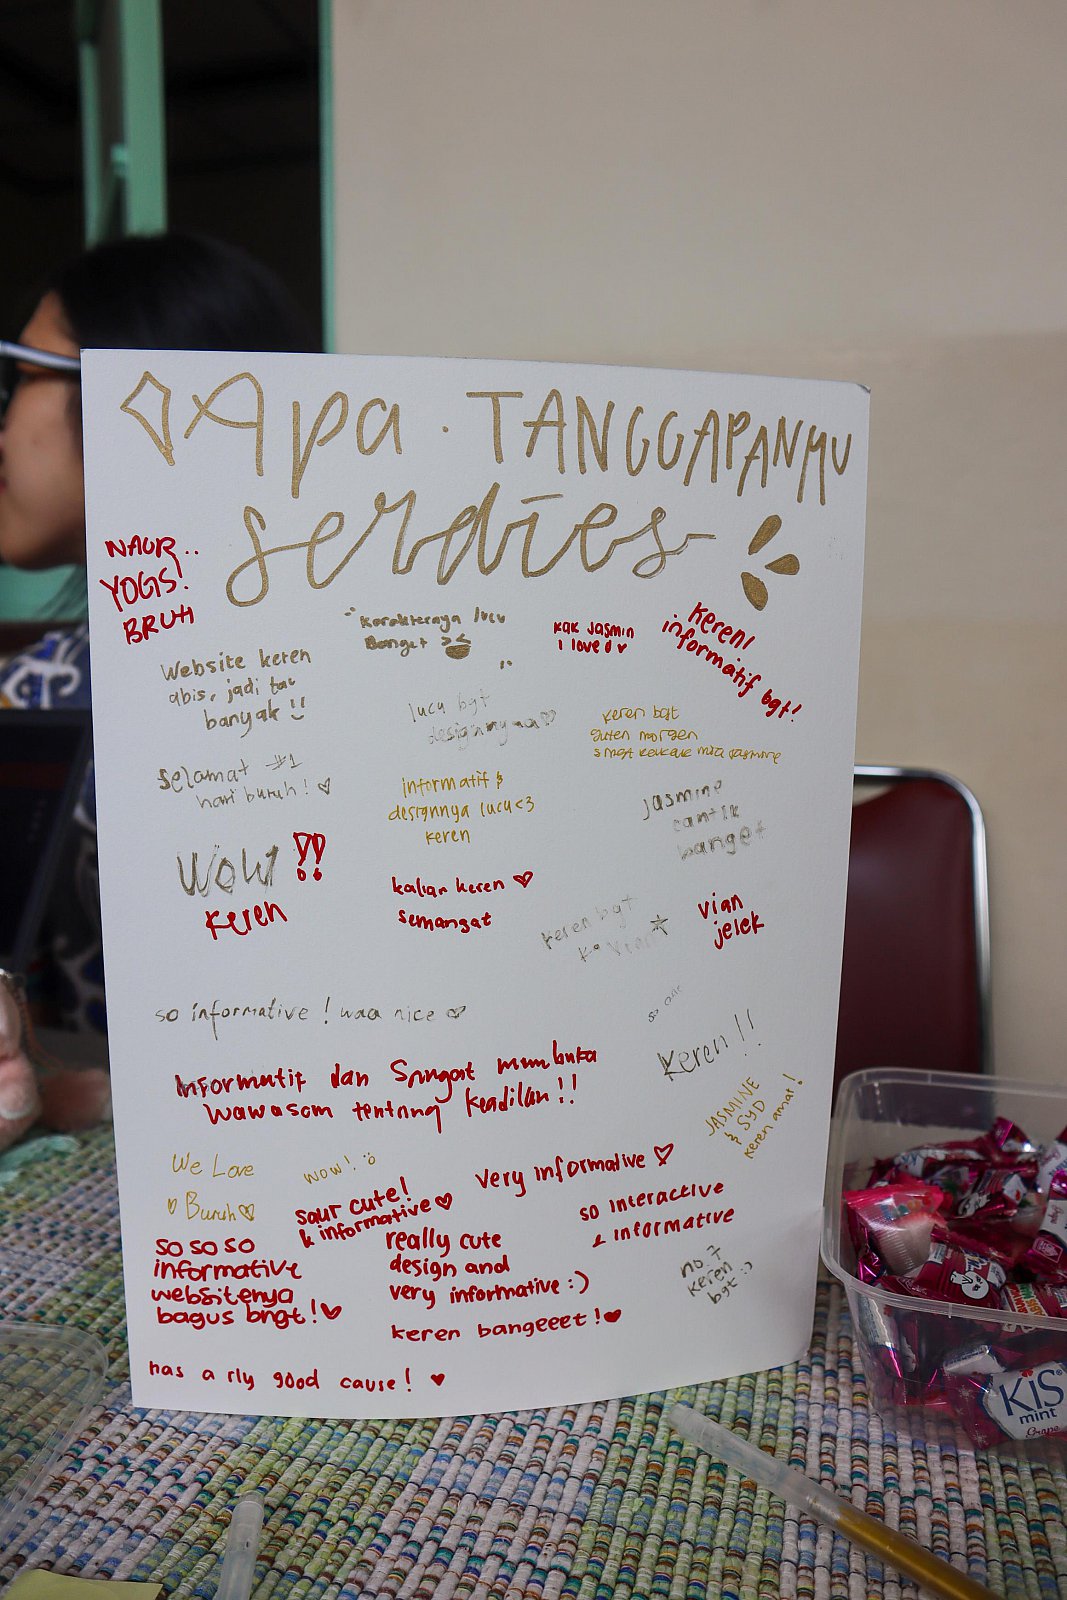 Apa TANGGAPANMU
serdies
NAUR..
YOGS!
BRUH
Karakternya lucu
Banget
kak Jasmin
i love u
Keren!
informatif bgt!
Website keren
abis, jadi tau
banyak !!
lucu bgt
designnyaa
keren bgt
guten morgen
Jasmine
Selamat #1
hari buruh!
informatif &
designnya lucu <3
keren
jasmine
cantik
banget
WOW !!
keren
kalian keren
semangat
keren bgt
vian
jelek
so informative ! waa nice
so
keren !!
Informatif dan Sangat membuka
wawasan tentang keadilan!!
JASMINE
& SYD
keren amat!
We Love
Buruh
wow!
saur cute!
& informative
very informative
so interactive
& informative
so so so
informative
websitenya
bagus bngt!
really cute
design and
very informative :)
no 7
keren
bgt :)
keren bangeeet!
has a rly good cause!
KIS
mint
Grape